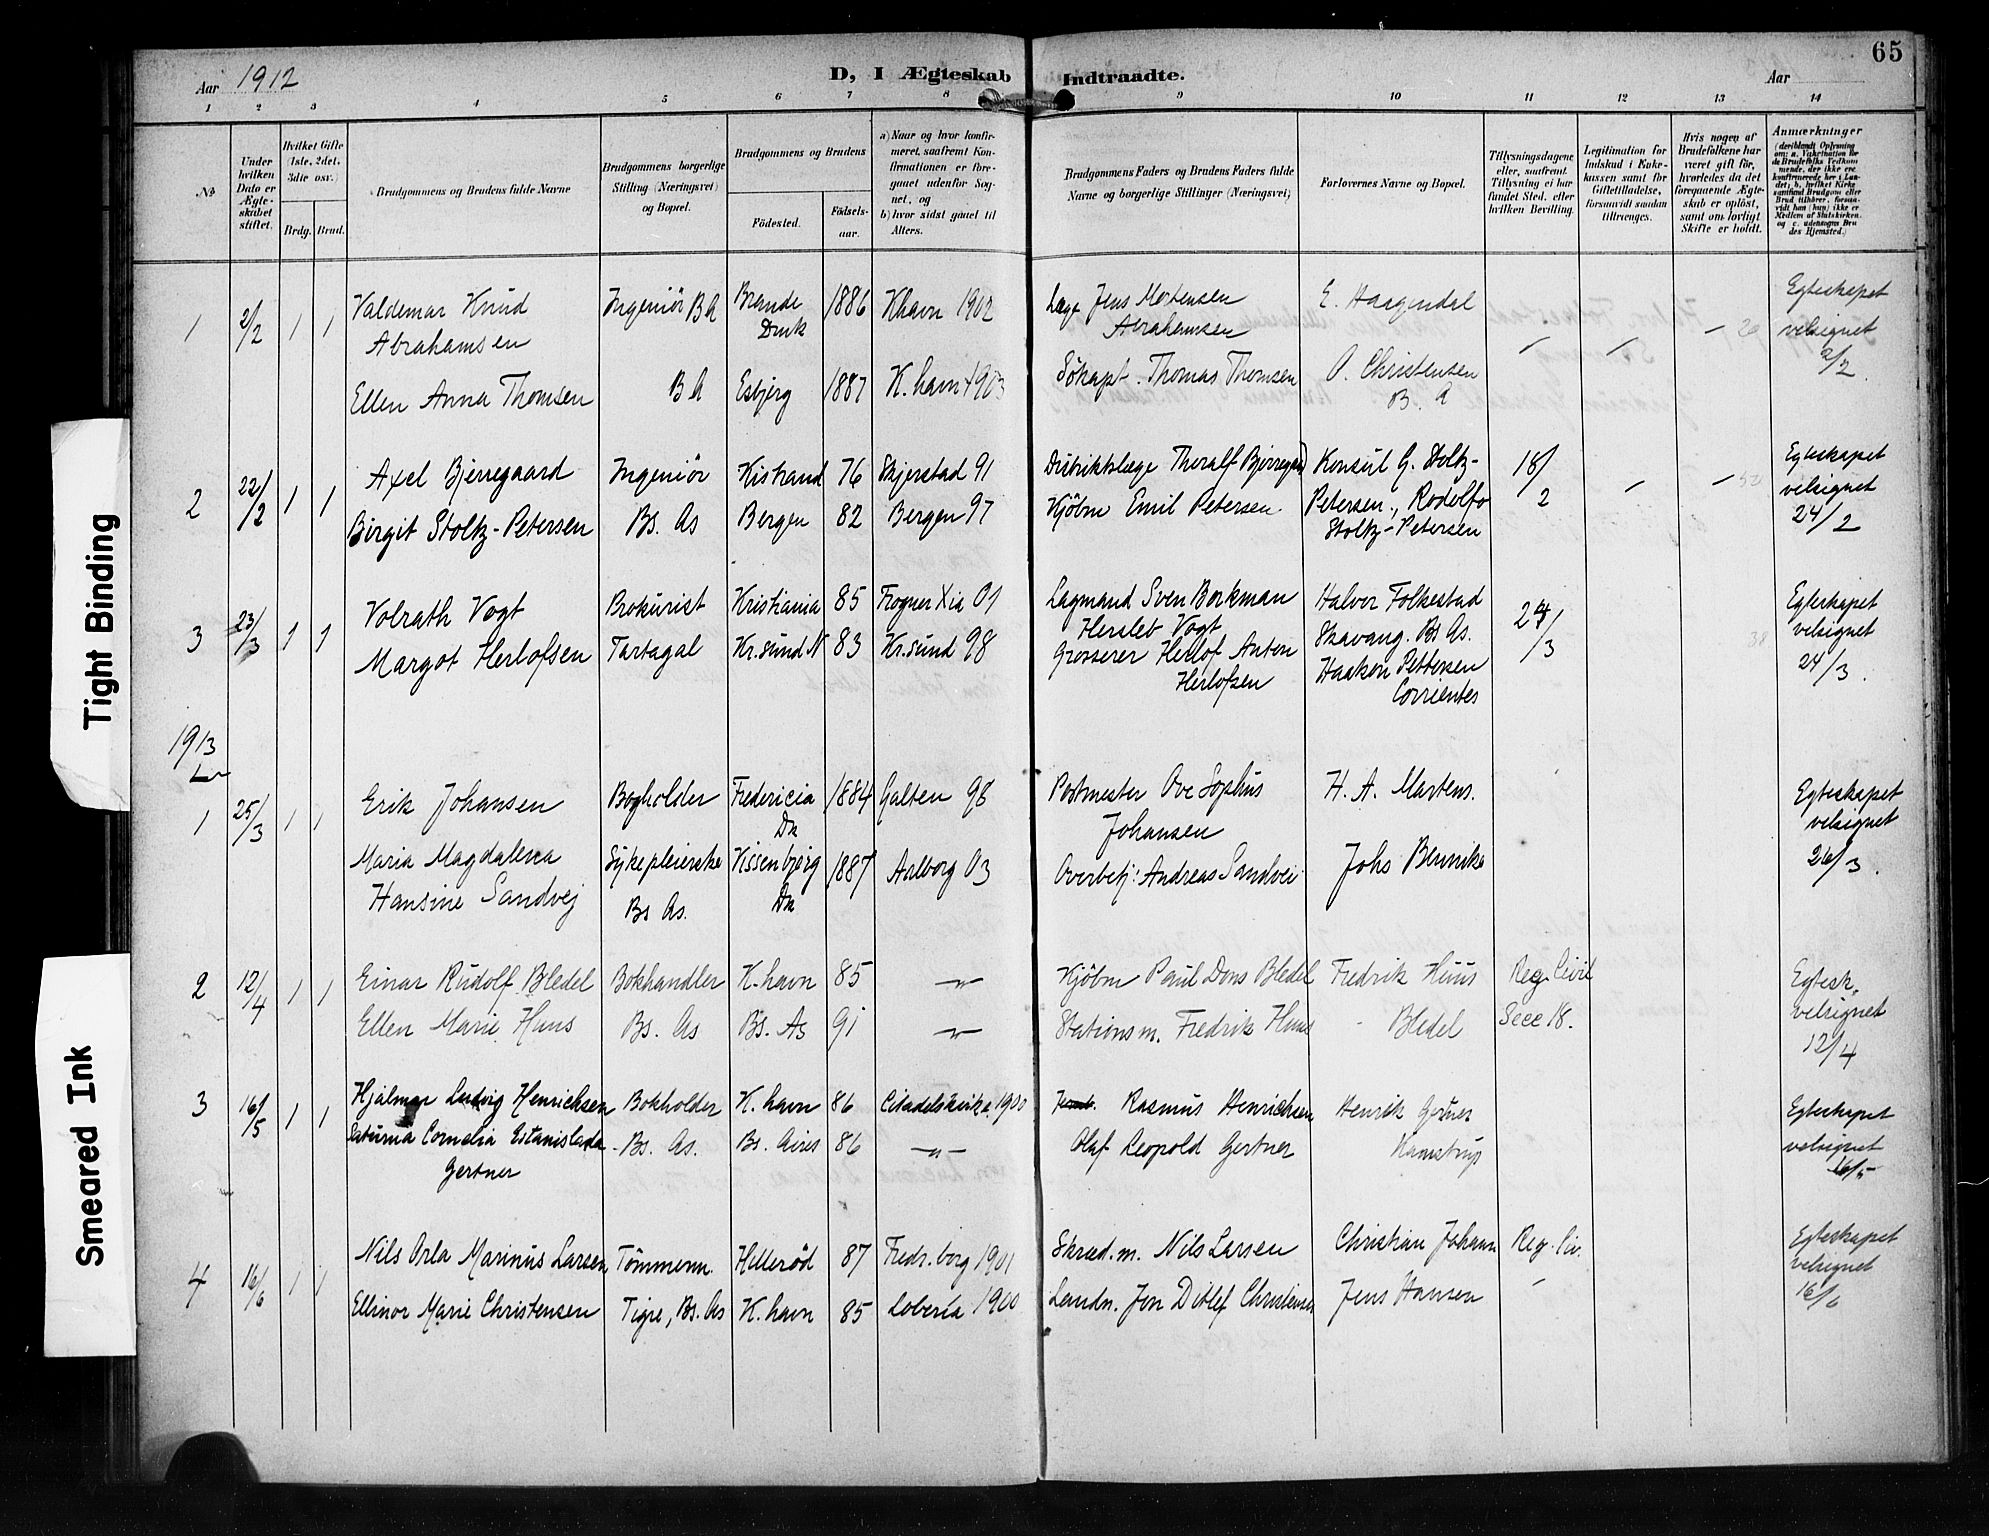 65
Aar 1912
D, I Ægteskab Indtraadte.
Aar
1 2 3 4 5 6 7 8 9 10 11 12 13 14
No
Under hvilken Dato er Ægteskabet stiftet.
Hvilket Gifte (1ste, 2det, 3die osv.)
Brdg. Brud.
Brudgommens og Brudens fulde Navne
Brudgommens borgerlige Stilling (Næringsvei) og Bopæl.
Brudgommens og Brudens
Fødested.
Fødselsaar.
a) Naar og hvor konfirmeret, saafremt Konfirmationen er foregaaet udenfor Sognet, og
b) hvor sidst gaaet til Alters.
Brudgommens Faders og Brudens Faders fulde Navne og borgerlige Stillinger (Næringsvei)
Forlovernes Navne og Bopæl.
Tillysningsdagene eller, saafremt Tillysning ei har fundet Sted, efter hvilken Bevilling.
Legitimation for Indskud i Enkekassen samt for Giftetilladelse, forsaavidt saadan tiltrænges.
Hvis nogen af Brudefolkene har været gift før, hvorledes da det foregaaende Ægteskab er opløst, samt om lovligt Skifte er holdt.
Anmærkninger
1 2/2 1 1 Valdemar Knud Abrahamsen Ingeniör BA Brande Dmk 1886 Khavn 1902 Læge Jens Mortensen Abrahamsen E. Haagendal
Ellen Anna Thomsen BA Esbjerg 1887 K.havn 1903 Sökapt. Thomas Thomsen O. Christensen B. A
Egteskapet velsignet 2/2
2 22/2 1 1 Axel Bjerregaard Ingeniör Kistrand 76 Skjerstad 91 Distriktslæge Thoralf Bjerregard Konsul G. Stoltz-Petersen, Rodolfo Stoltz-Petersen 18/2
Birgit Stoltz-Petersen Bs. As Bergen 82 Bergen 97 Kjöbm Emil Petersen
Egteskapet velsignet 24/2
3 23/3 1 1 Volrath Vogt Prokurist Kristiania 85 Frogner Xia 01 Lagmand Sven Borkman Hersleb Vogt Halvor Folkestad Skavang. Bs As. 24/3
Margot Herlofsen Tartagal Kr.sund N 83 Kr.sund 98 Grosserer Herlof Anton Herlofsen Haakon Pettersen Corrientes
Egteskapet velsignet 24/3.
1913
1 25/3 1 1 Erik Johansen Bogholder Fredericia Dk 1884 Galten 98 Postmester Ove Sophus Johansen H. A. Martens.
Maria Magdalena Hansine Sandvej Sykepleierske Bs As. Vissenbjerg Dk 1887 Aalborg 03 Overbetj: Andreas Sandvei Johs Bennike
Egteskapet velsignet 26/3.
2 12/4 1 1 Einar Rudolf Bledel Bokhandler K.havn 85 -"- Kjöbm Paul Dons Bledel Fredrik Huus Reg. Civil
Ellen Marie Huus Bs. As Bs. As 91 -"- Stationsm. Fredrik Huus - Bledel Secc 18.
Egtesk. velsignet 12/4
3 16/5 1 1 Hjalmar Ludvig Henrichsen Bokholder K. havn 86 Citadelskirke. 1900 Rasmus Henrichsen Henrik Gertner
Saturna Cornelia Estanislada Gertner Bs. As. Bs. Aires 86 -"- Olaf Leopold Gertner Kamstrup
Egteskapet velsignet 16/5
4 16/6 1 1 Nils Orla Marinus Larsen Tömmerm. Hilleröd 87 Fredr.borg 1901 Skræd.m. Nils Larsen Christian Johann Reg. Civ.
Ellinor Marie Christensen Tigre, Bs. As K.havn 85 Loberia 1900 Landm. Jon Ditlef Christensen Jens Hansen
Egteskapet velsignet 16/6
Tight Binding
Smeared Ink